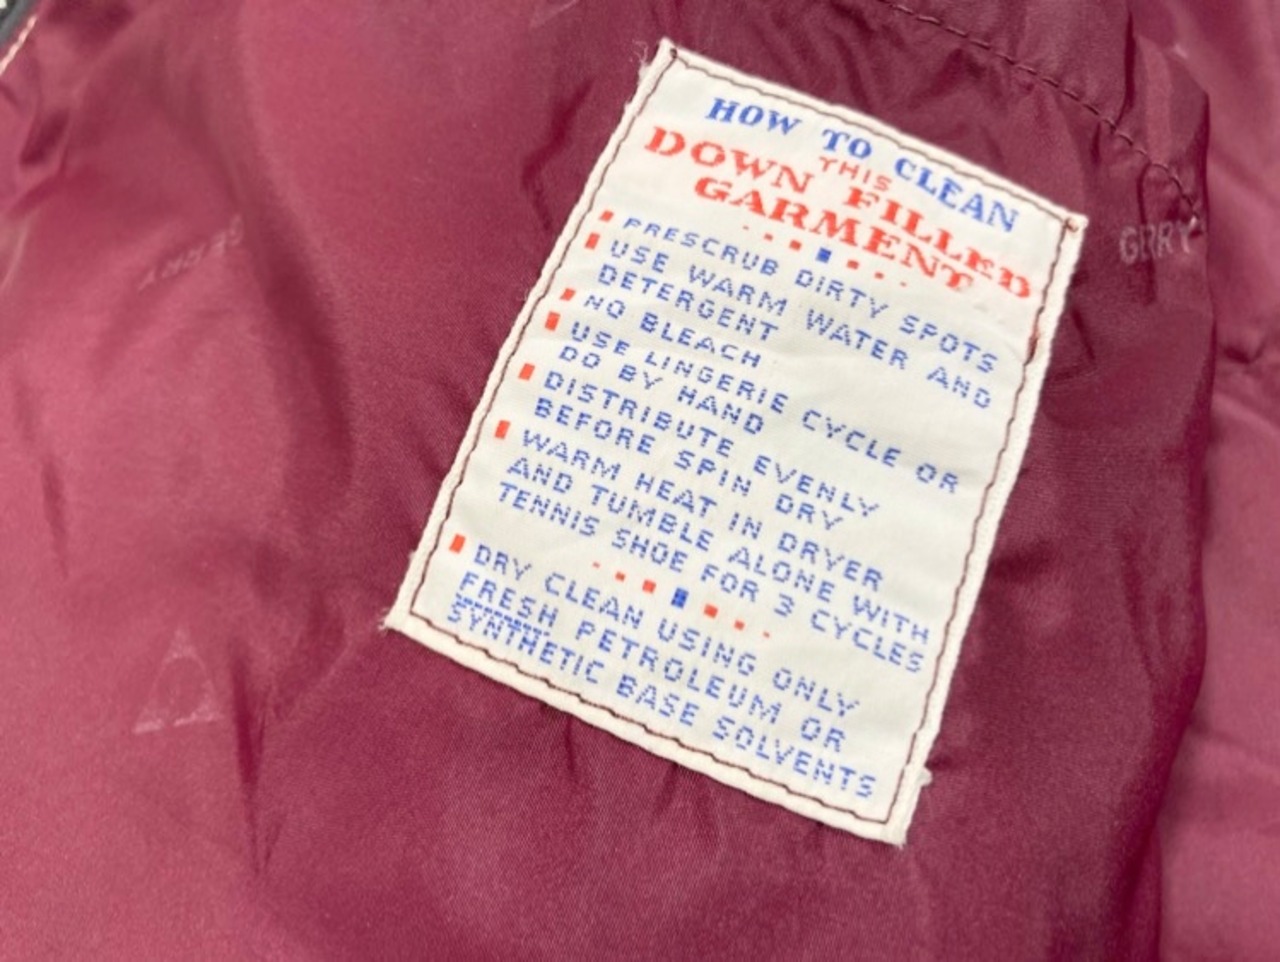 HOW TO CLEAN
THIS
DOWN FILLED
GARMENT
PRESCRUB DIRTY SPOTS
USE WARM WATER AND
DETERGENT
NO BLEACH
USE LINGERIE CYCLE OR
DO BY HAND
DISTRIBUTE EVENLY
BEFORE SPIN DRY
WARM HEAT IN DRYER
AND TUMBLE ALONE WITH
TENNIS SHOE FOR 3 CYCLES
DRY CLEAN USING ONLY
FRESH PETROLEUM OR
SYNTHETIC BASE SOLVENTS
GERRY